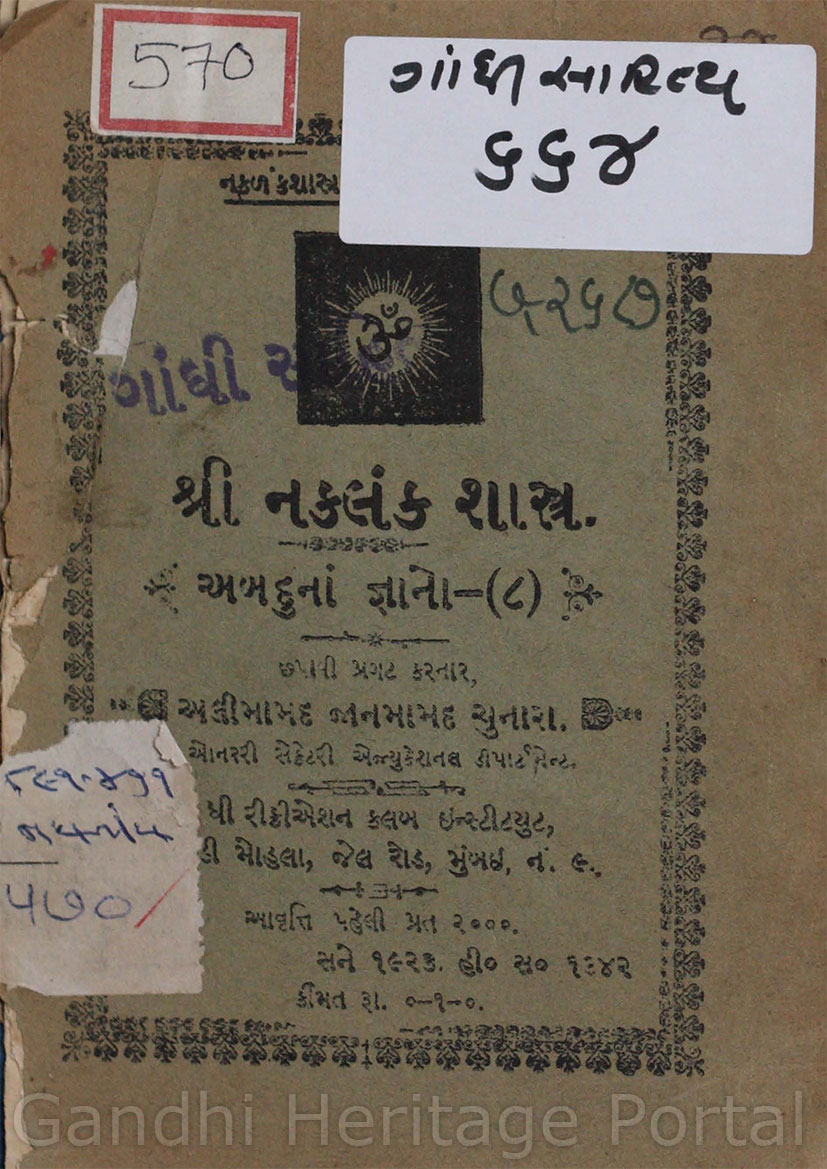 570
ગાંધી સાહિત્ય
૬૬૪
નકળંકશાસ્ત્ર
ૐ
૫૨૬૭
ગાંધી
શ્રી નકલંક શાસ્ત્ર.
અબદુનાં જ્ઞાનો–(૮)
છપાવી પ્રગટ કરનાર,
અલીમામદ જાનમામદ ચુનારા.
ઓનરરી સેક્રેટરી એજ્યુકેશનલ ડીપાર્ટમેન્ટ.
ધી રીક્રીએશન કલબ ઇન્સ્ટીટયુટ,
મોહલા, જેલ રોડ, મુંબઇ, નં. ૯.
૫૭૦
આવૃત્તિ પહેલી પ્રત ૨૦૦૦.
સને ૧૯૨૩. હી૦ સ૦ ૧૩૪૨
કીંમત રૂા. ૦–૧–૦.
Gandhi Heritage Portal